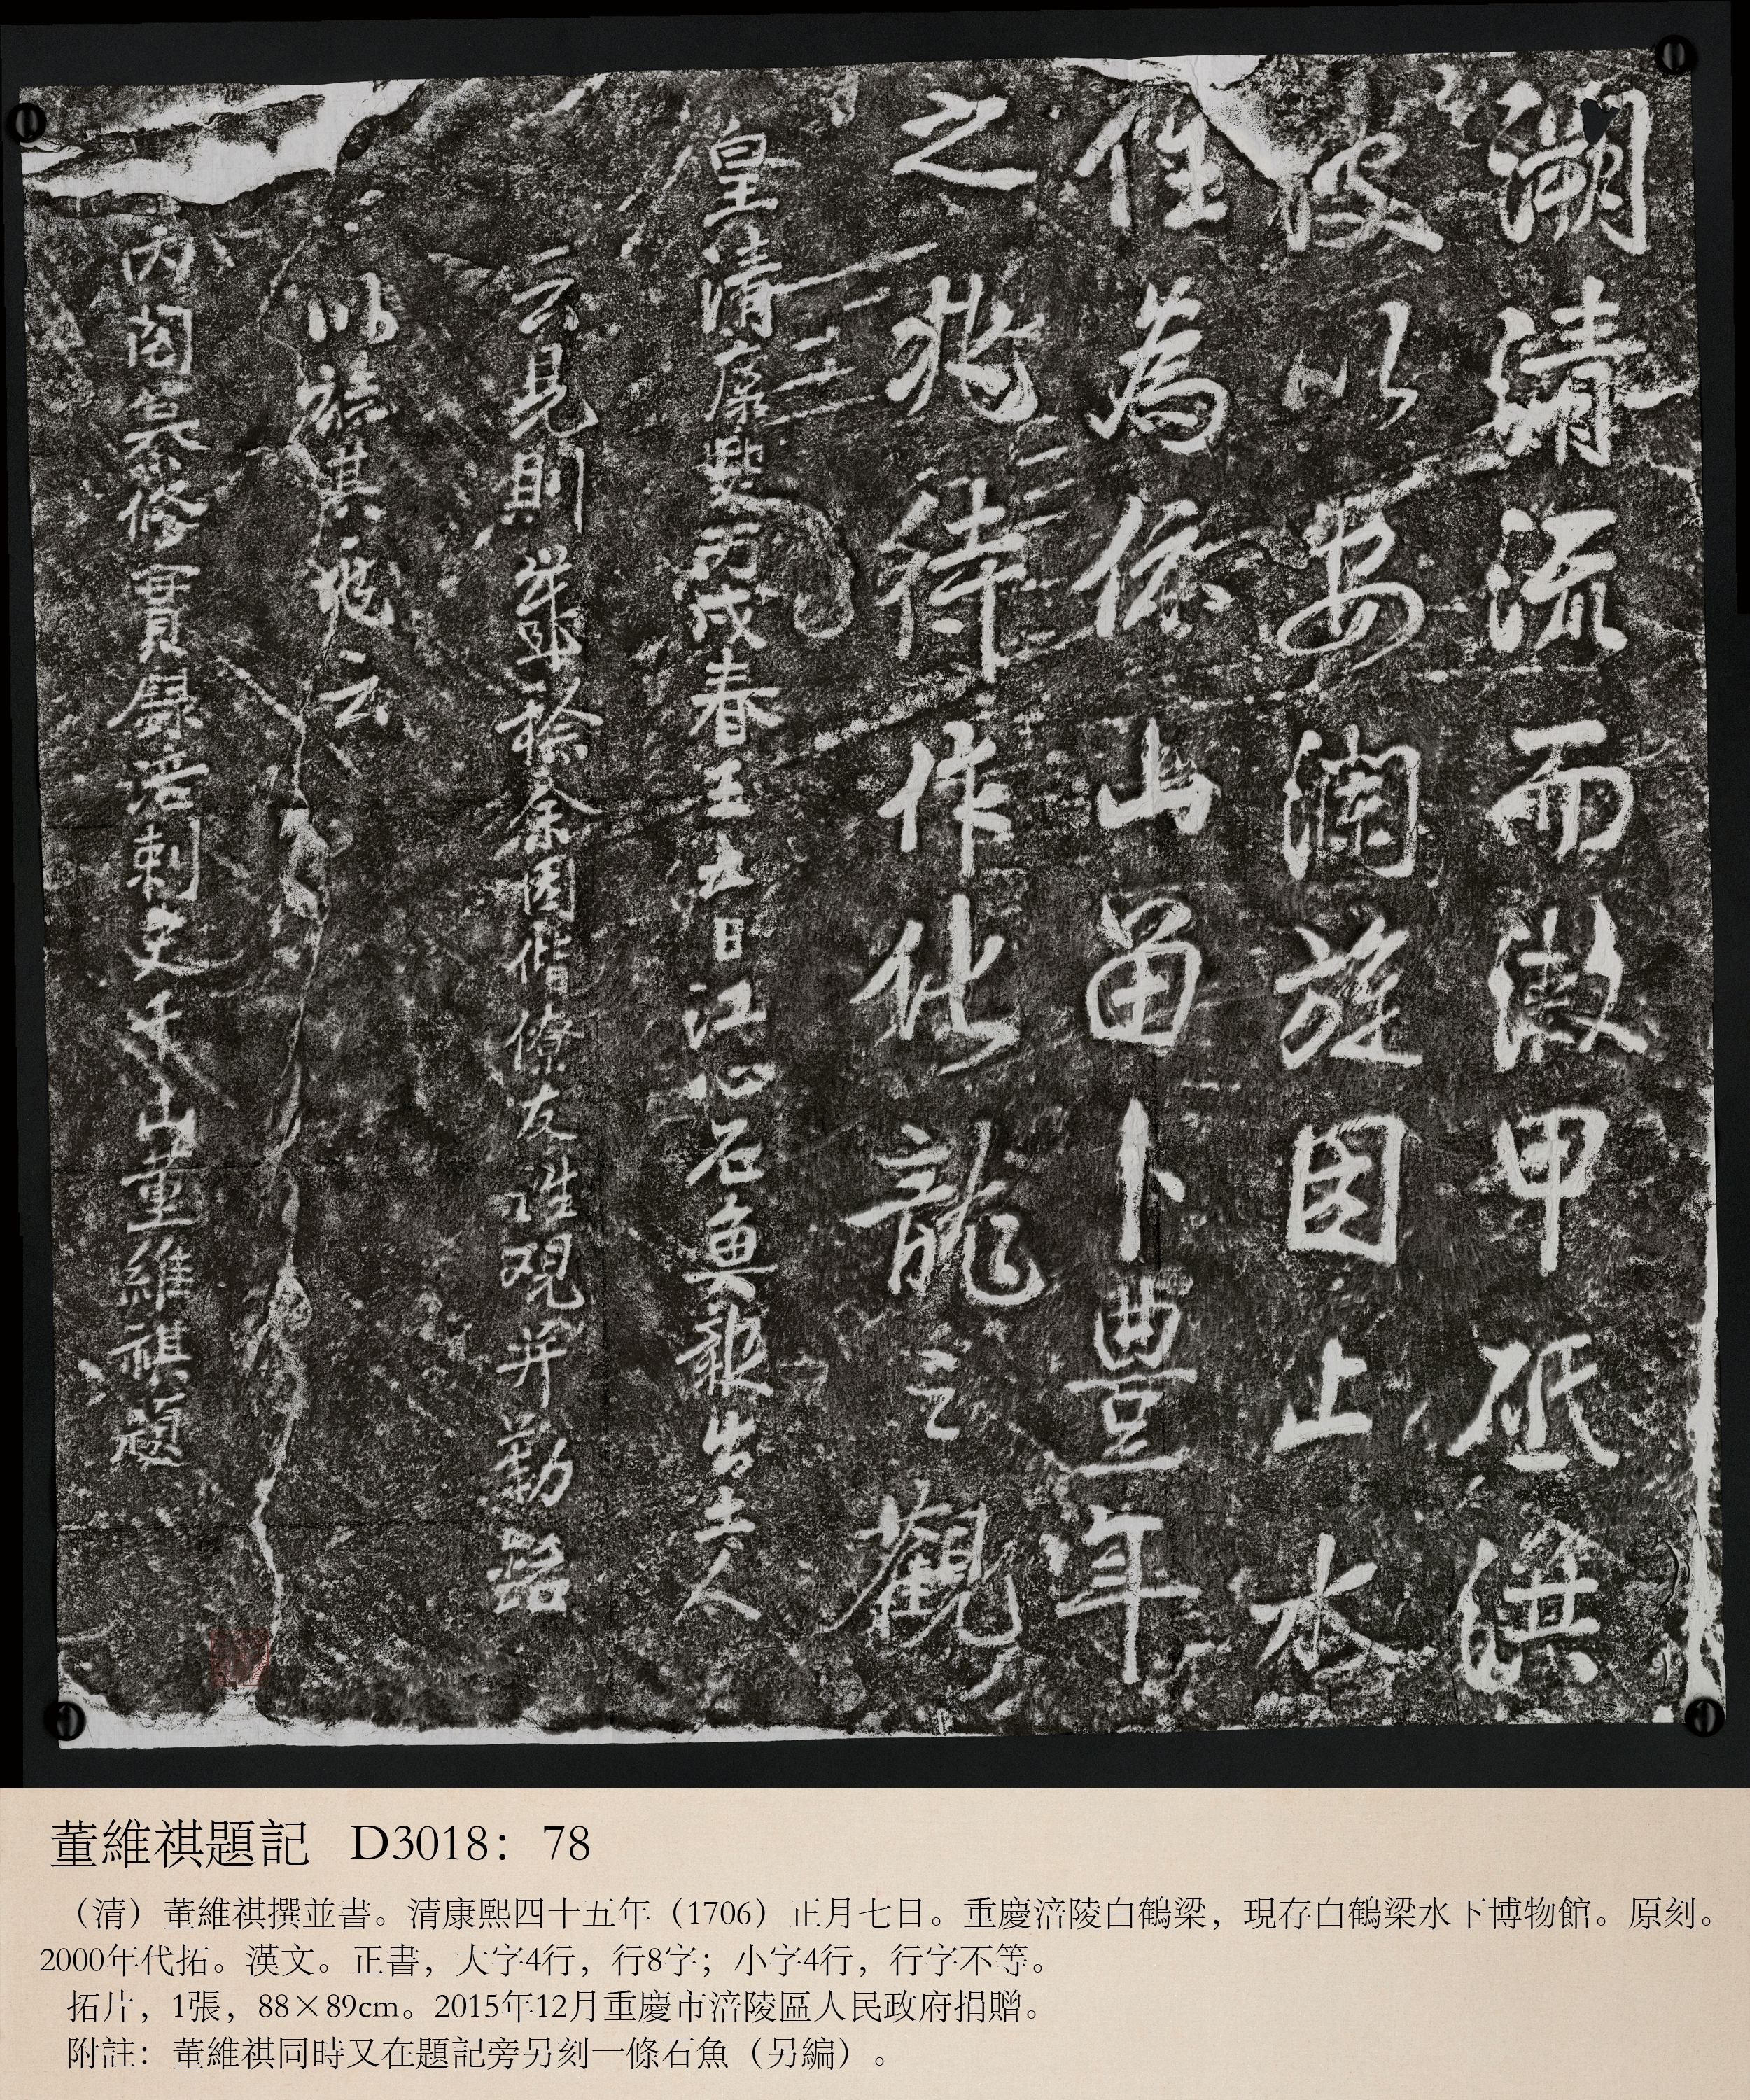 溯清流而潄甲砥洪
波以安瀾旋因止水
住為依山畱卜豊年
之兆待作化龍之觀
皇清康熙丙戌春王七日江心石魚報出土人
云見則歲稔余因偕僚友往覌并勒銘
以誌其兆云
內閣纂修實錄涪刺史千山董維祺題
董維祺題記 D3018：78
（清）董維祺撰並書。清康熙四十五年（1706）正月七日。重慶涪陵白鶴梁，現存白鶴梁水下博物館。原刻。
2000年代拓。漢文。正書，大字4行，行8字；小字4行，行字不等。
拓片，1張，88×89cm。2015年12月重慶市涪陵區人民政府捐贈。
附註：董維祺同時又在題記旁另刻一條石魚（另編）。